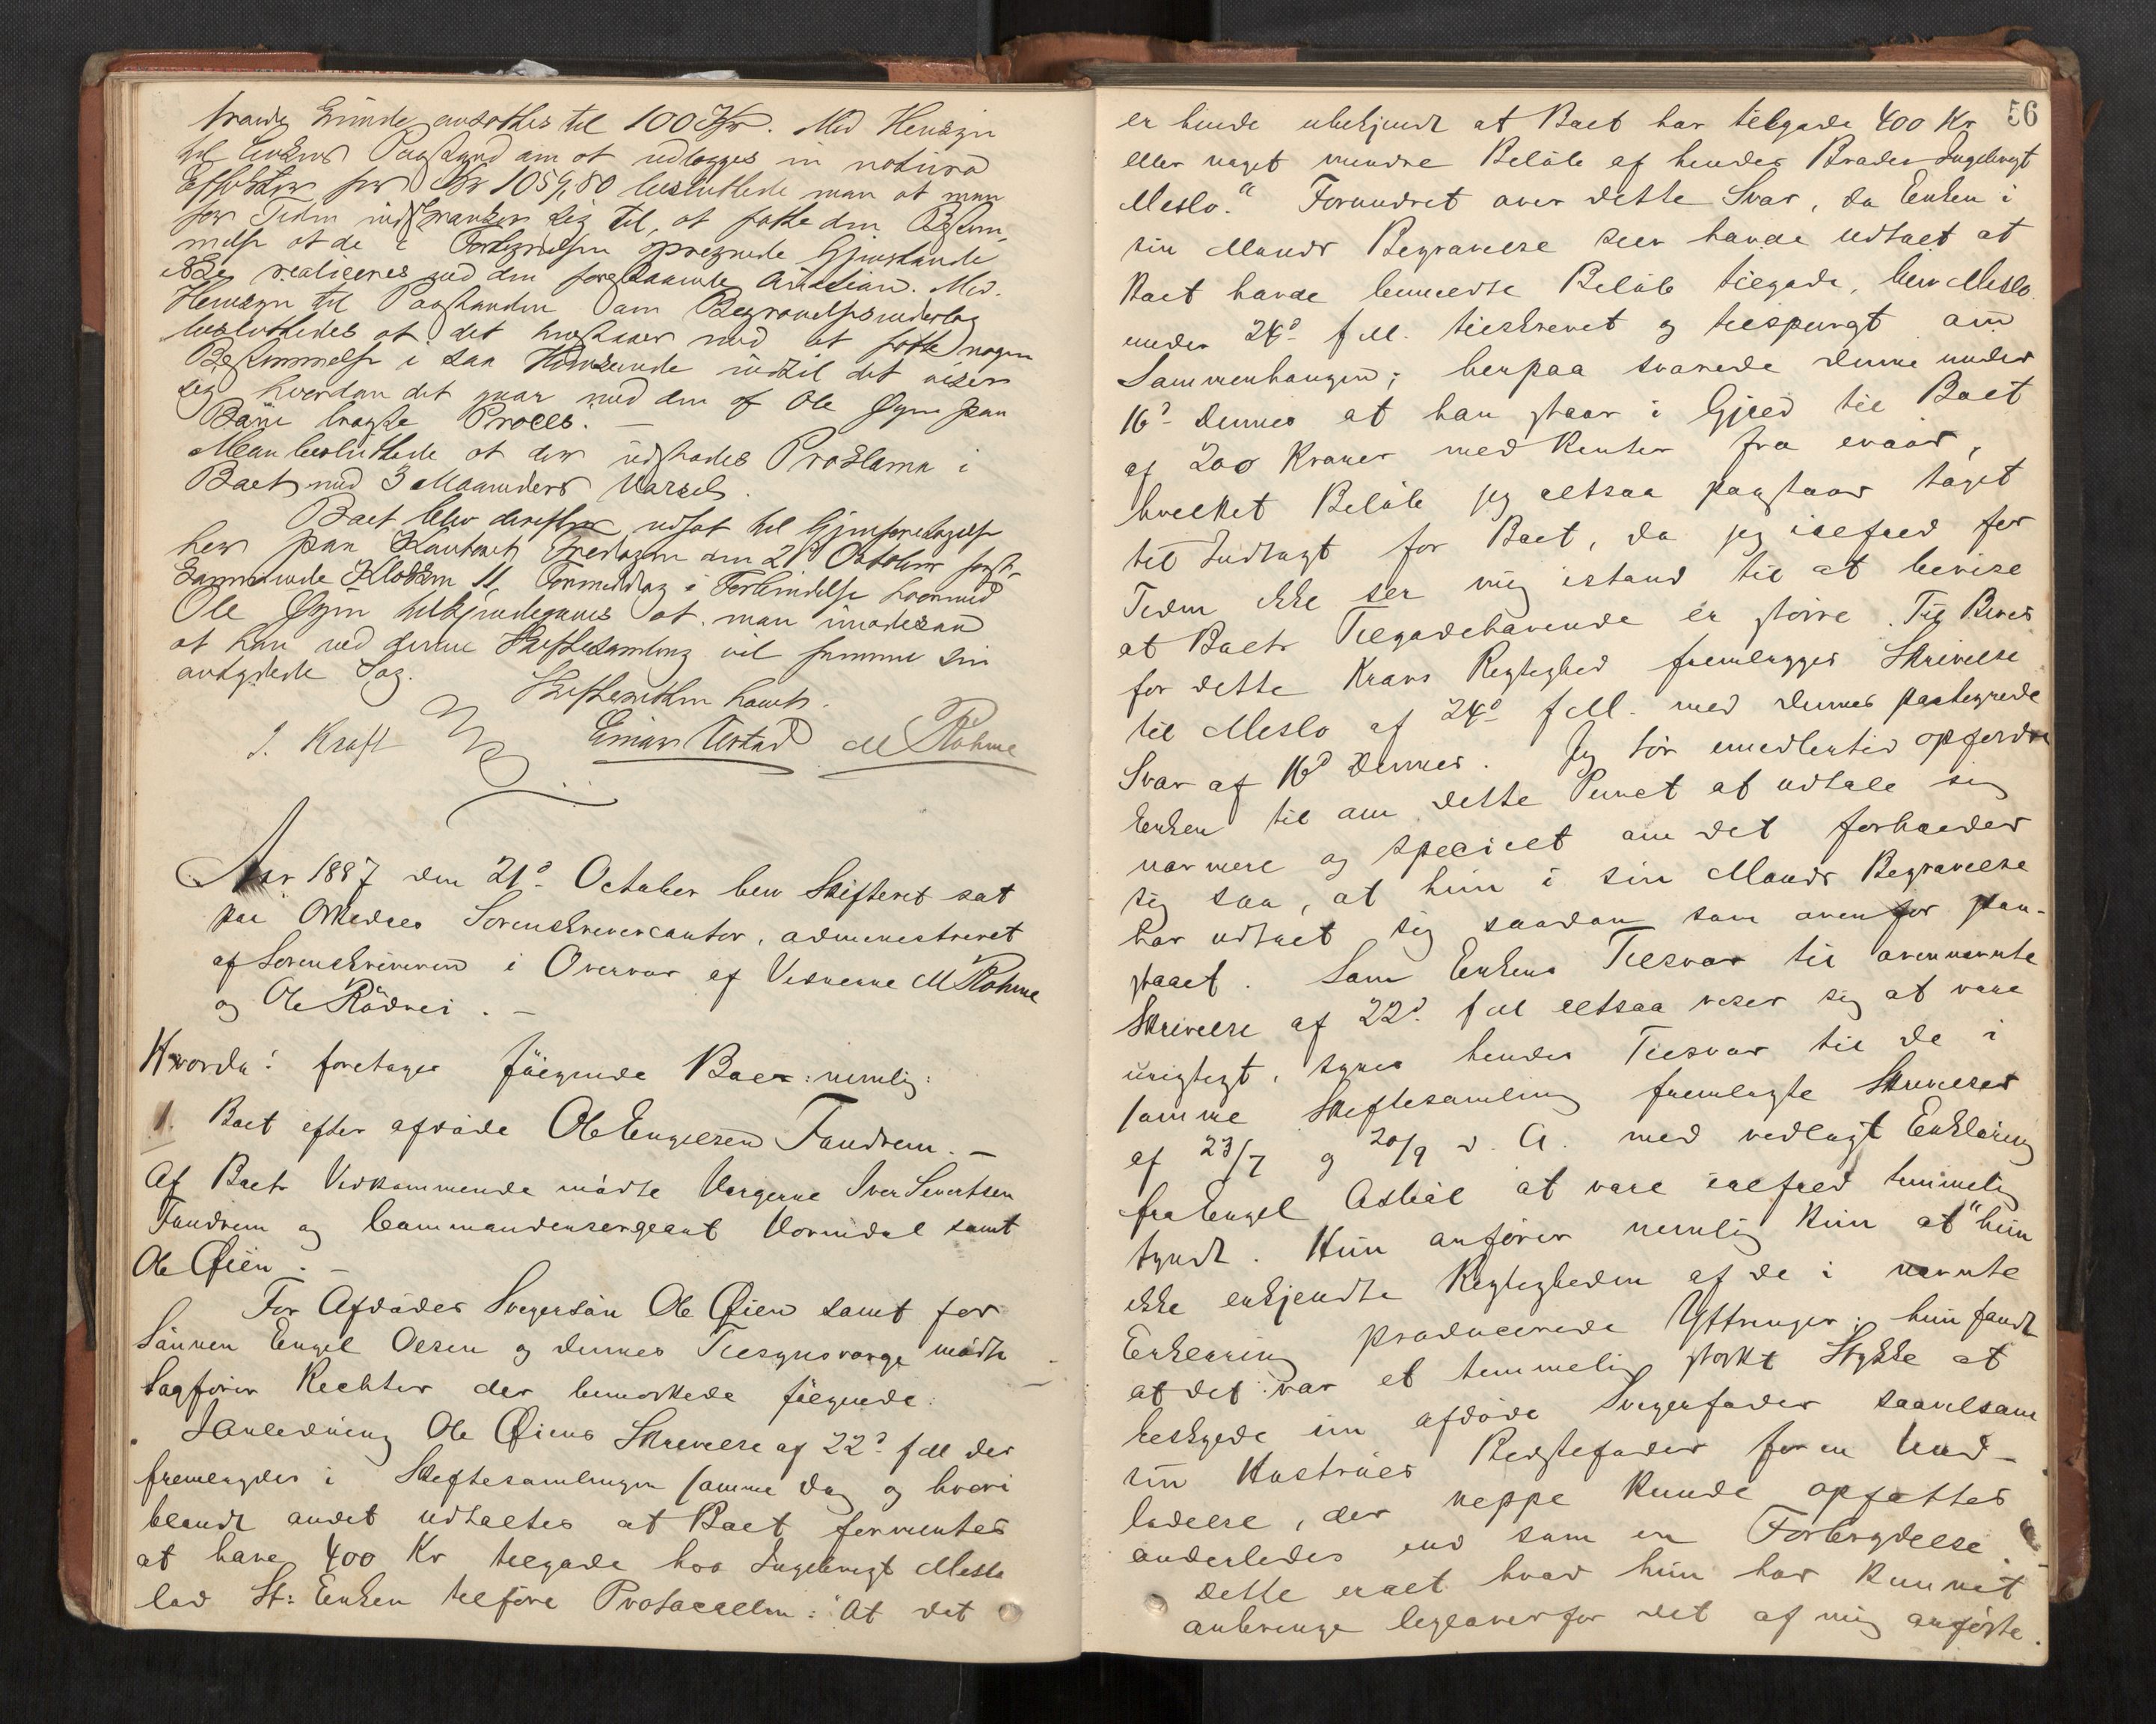 Grunde ansættes til 100 Kr. Med Hensyn
til Enkens Paastand om at udlægges in natura
Effekter for Kr 1059,80 besluttede man at man
for Tiden indskrænker sig til, at fatte den Bestem-
melse at de i Fortegnelsen opregnede Gjenstande
ikke realiseres ved den forestaaende Auktion. Med
Hensyn til Paastanden om Begravelsesudlæg
besluttedes at det med at fatte nogen
Bestemmelse i saa Henseende indtil det viser
sig hvordan det gaar med den af Ole Øyen paa
Bane bragte Proces. –
Man besluttede at der udstædes Proklama i
Boet med 3 Maaneders Varsel.
Boet blev derefter udsat til Gjenforetagelse
her paa Kontoret Fredagen den 21d Oktober først-
kommende Klokken 11 Formiddag i Forbindelse hvormed
Ole Øyen tilkjendegaves at man imødesaa
at han ved denne Skiftesamling vil fremme sin
antydede Sag.
Skifteretten hævet.
J. Kraft Einar Ustad M Rohme
Aar 1887 den 21d October blev Skifteret sat
paa Orkedals Sorenskrivercontor, administreret
af Sorenskriveren i Overvær af Vidnerne M Rohme
og Ole Rödvei. –
Hvorda: foretages følgende Boer: nemlig:
1. Boet efter afdøde Ole Engelsen Fandrem. –
Af Boets Vedkommende mødte Værgerne Iver Sivertsen
Fandrem og Commandersergeant Vormdal samt
Ole Øien. –
For Afdødes Svigersøn Ole Øien samt for
Sønnen Engel Olsen og dennes Tilsynsværge mødte
Sagfører Richter der bemærkede følgende:
I Anledning Ole Øiens Skrivelse af 22d f M der
fremlagdes i Skiftesamlingen samme Dag og hvori
blandt andet udtaltes at Boet formentes
at have 400 Kr tilgode hos Ingebrigt Meslo
lod St: Enken tilføre Protocollen: "At det
56
er hende ubekjendt at Boet har tilgode 400 Kr
eller noget mindre Beløb af hendes Broder Ingebrigt
Meslo." Forundret over dette Svar, da Enken i
sin Mands Begravelse selv havde udtalt at
Boet havde bemeldte Beløb tilgode, blev Meslo
under 24d f M. tilskrevet og tilspurgt om
Sammenhængen; herpaa svarede denne under
16d dennes at han staar i Gjeld til Boet
af 200 Kroner med Renter fra ,
hvilket Beløb jeg altsaa paastaar taget
til Indtægt for Boet, da jeg ialfald for
Tiden ikke ser mig istand til at bevise
at Boets Tilgodehavende er større. Til Bevis
for dette Kravs Rigtighed fremlægges Skrivelse
til Meslo af 24d f M. med dennes paategnede
Svar af 16d dennes. Jeg tør imidlertid opfordre
Enken til om dette Punct at udtale sig
nærmere og specielt om det forholder
sig saa, at hun i sin Mands Begravelse
har udtalt sig saadan som ovenfor paa-
staaet. Som Enkens Tilsvar til ovennævnte
Skrivelse af 22d f M altsaa viser sig at være
urigtigt, synes hendes Tilsvar til de i
samme Skiftesamling fremlagte Skrivelser
af 23/7 og 20/9 d. A. med vedlagt Erklæring
fra Engel Asbøl at være ialfald temmelig
tyndt. Hun anfører nemlig kun at "hun
ikke erkjendte Rigtigheden af de i nævnte
Erklæring producerede Yttringer; hun fandt
at det var et temmelig stærkt Stykke at
beskylde sin afdøde Svigerfader saavelsom
sin Hustrues Bedstefader for en Und-
ladelse, der neppe kunde opfattes
anderledes end som en Forbrydelse". –
Dette er alt hvad hun har kunnet
anbringe ligeoverfor det af mig anførte.